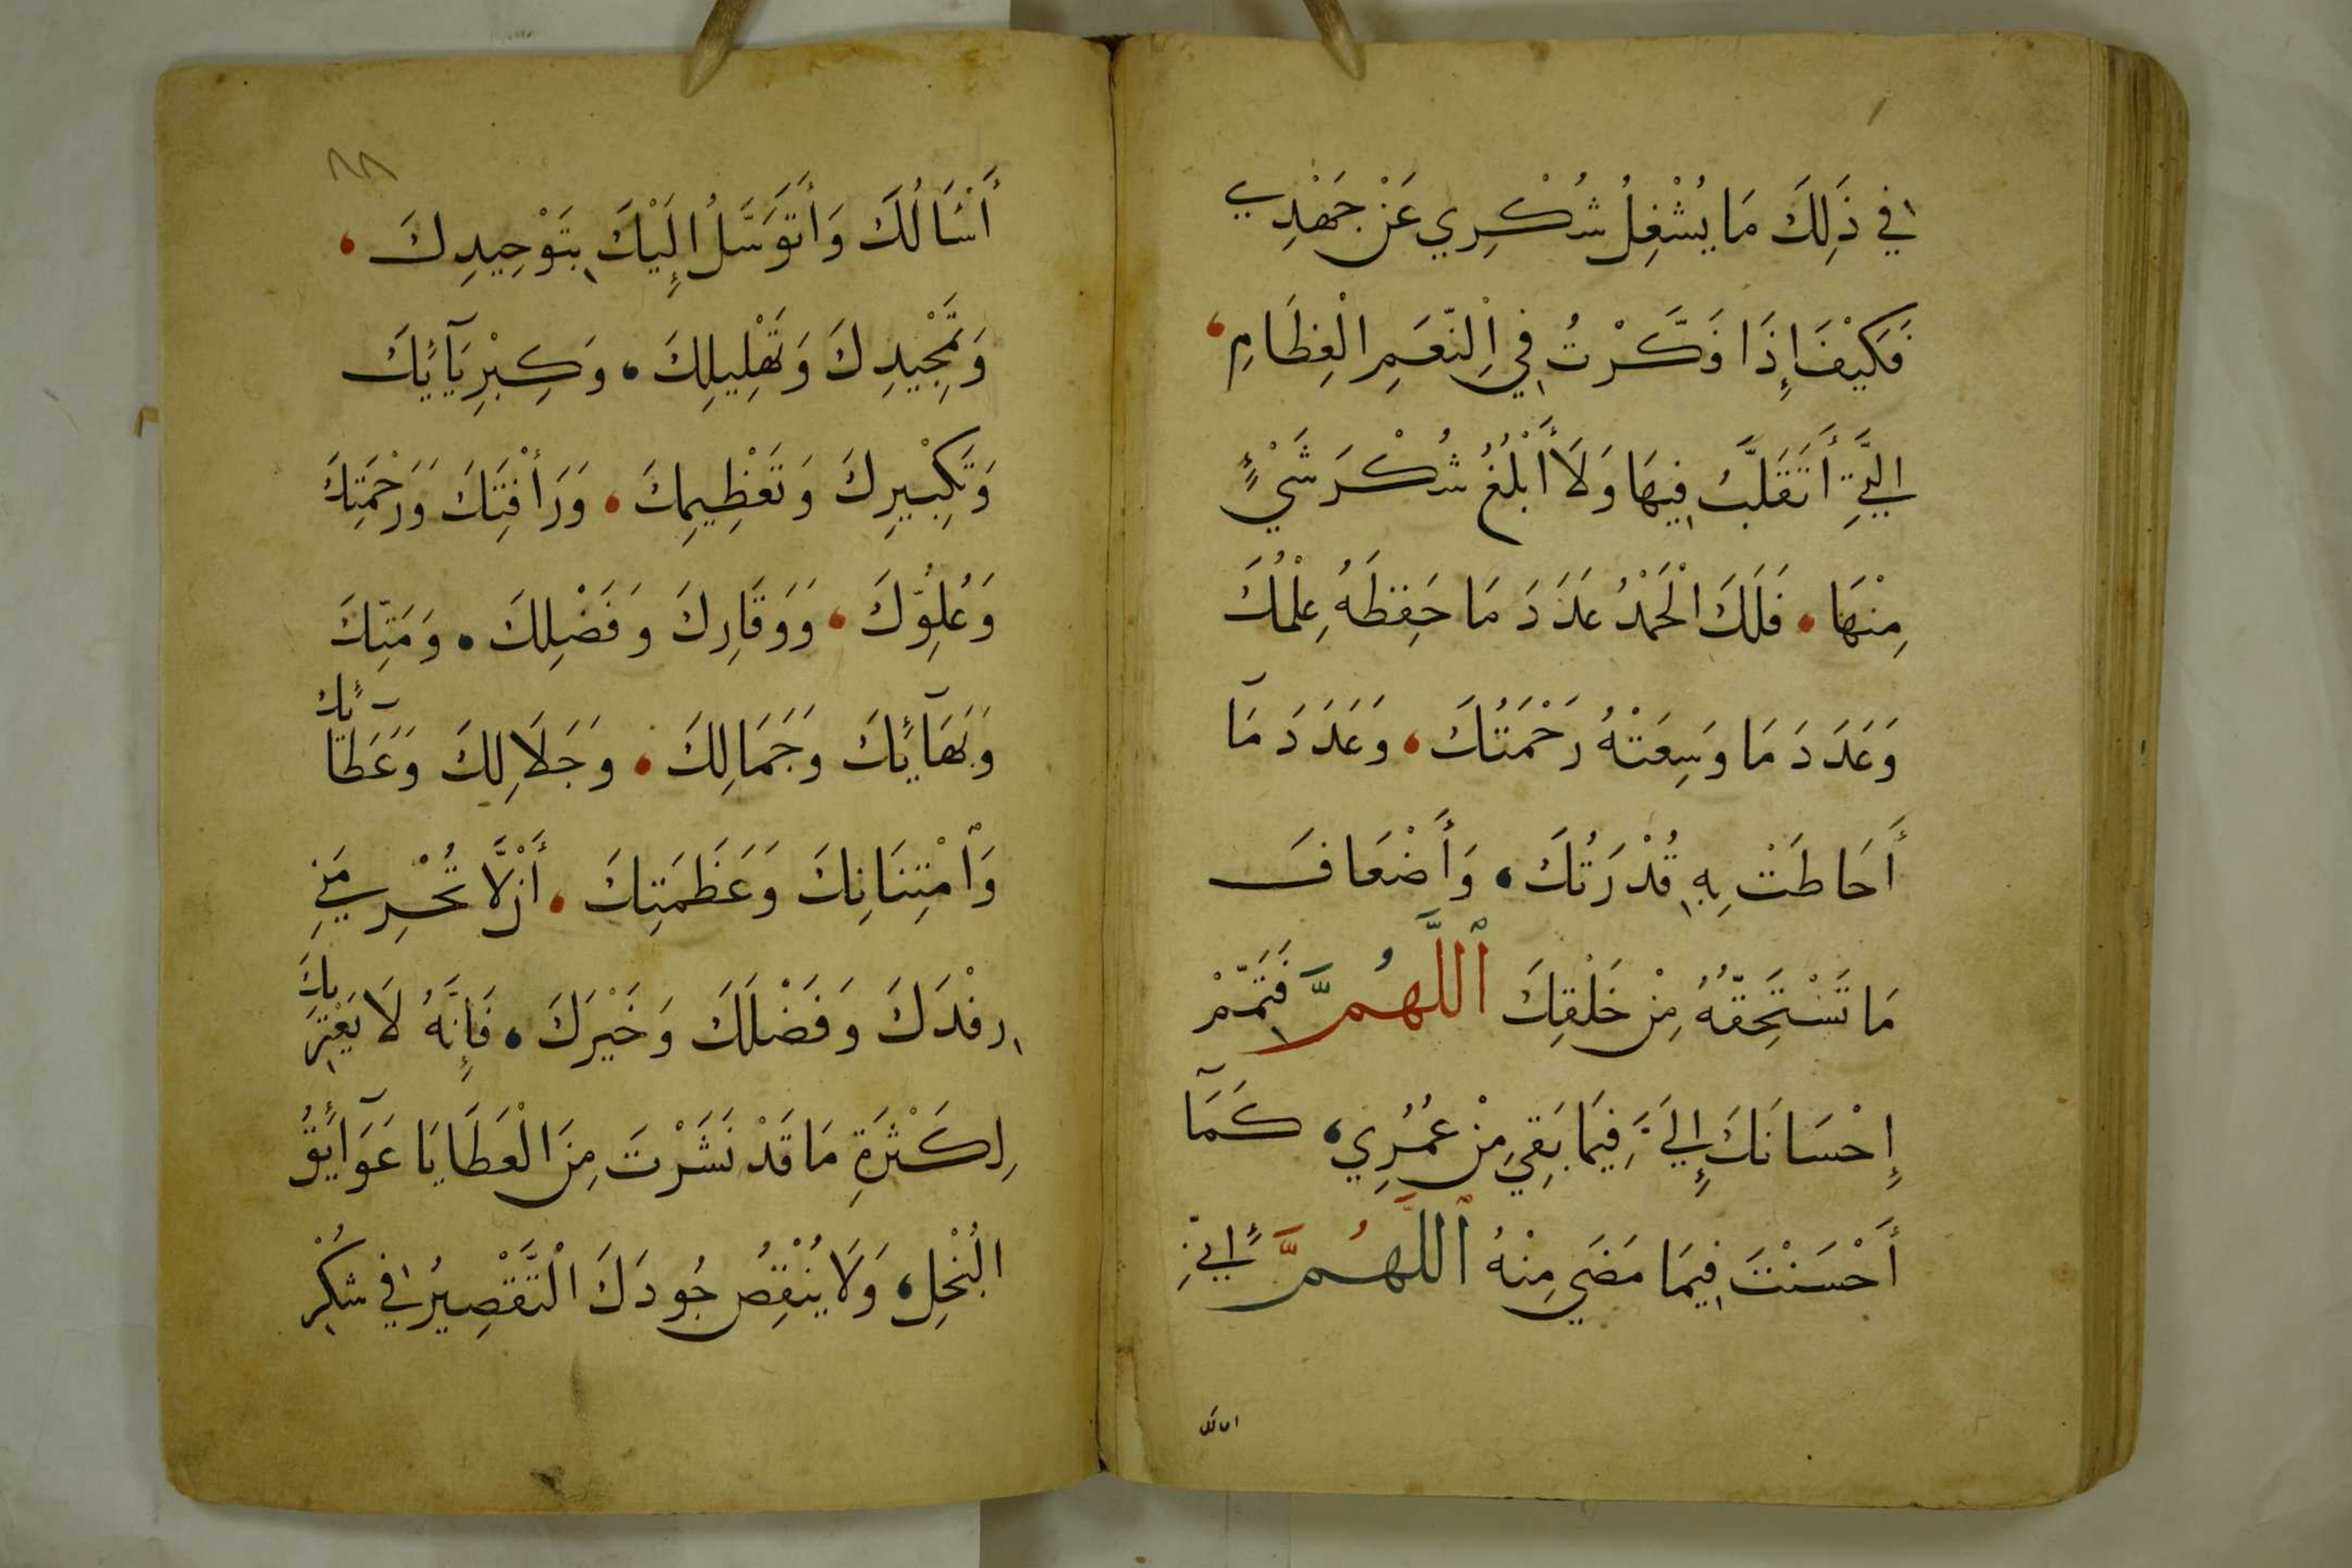 فِي ذَلِكَ مَا يُشْغِلُ شُكْرِي عَنْ جَهْدِي
فَكَيْفَ إِذَا فَكَّرْتُ فِي النِّعَمِ الْعِظَامِ
الَّتِي أَتَقَلَّبُ فِيهَا وَلَا أَبْلُغُ شُكْرَ شَيْءٍ
مِنْهَا، فَلَكَ الْحَمْدُ عَدَدَ مَا حَفِظَهُ عِلْمُكَ
وَعَدَدَ مَا وَسِعَتْهُ رَحْمَتُكَ، وَعَدَدَ مَآ
أَحَاطَتْ بِهِ قُدْرَتُكَ، وَأَضْعَافَ
مَا تَسْتَحِقُّهُ مِنْ خَلْقِكَ اللَّهُمَّ فَتَمِّمْ
إِحْسَانَكَ إِلَيَّ فِيمَا بَقِيَ مِنْ عُمُرِي، كَمَآ
أَحْسَنْتَ فِيمَا مَضَى مِنْهُ اللَّهُمَّ إِنِّي
اسالك
٨٨
أَسْأَلُكَ وَأَتَوَسَّلُ إِلَيْكَ بِتَوْحِيدِكَ،
وَتَمْجِيدِكَ وَتَهْلِيلِكَ، وَكِبْرِيَآئِكَ
وَتَكْبِيرِكَ وَتَعْظِيمِكَ، وَرَأْفَتِكَ وَرَحْمَتِكَ
وَعُلُوِّكَ، وَوَقَارِكَ وَفَضْلِكَ، وَمَنِّكَ
وَبَهَآئِكَ وَجَمَالِكَ، وَجَلَالِكَ وَعَطَآئِكَ
وَامْتِنَانِكَ وَعَظَمَتِكَ، أَنْ لَّا تُحْرِمَنِي
رِفْدَكَ وَفَضْلَكَ وَخَيْرَكَ، فَإِنَّهُ لَا يَعْتَرِيكَ
لِكَثْرَةِ مَا قَدْ نَشَرْتَ مِنَ الْعَطَايَا عَوَآئِقُ
الْبُخْلِ، وَلَا يُنْقِصُ جُودَكَ التَّقْصِيرُ فِي شُكْرِ